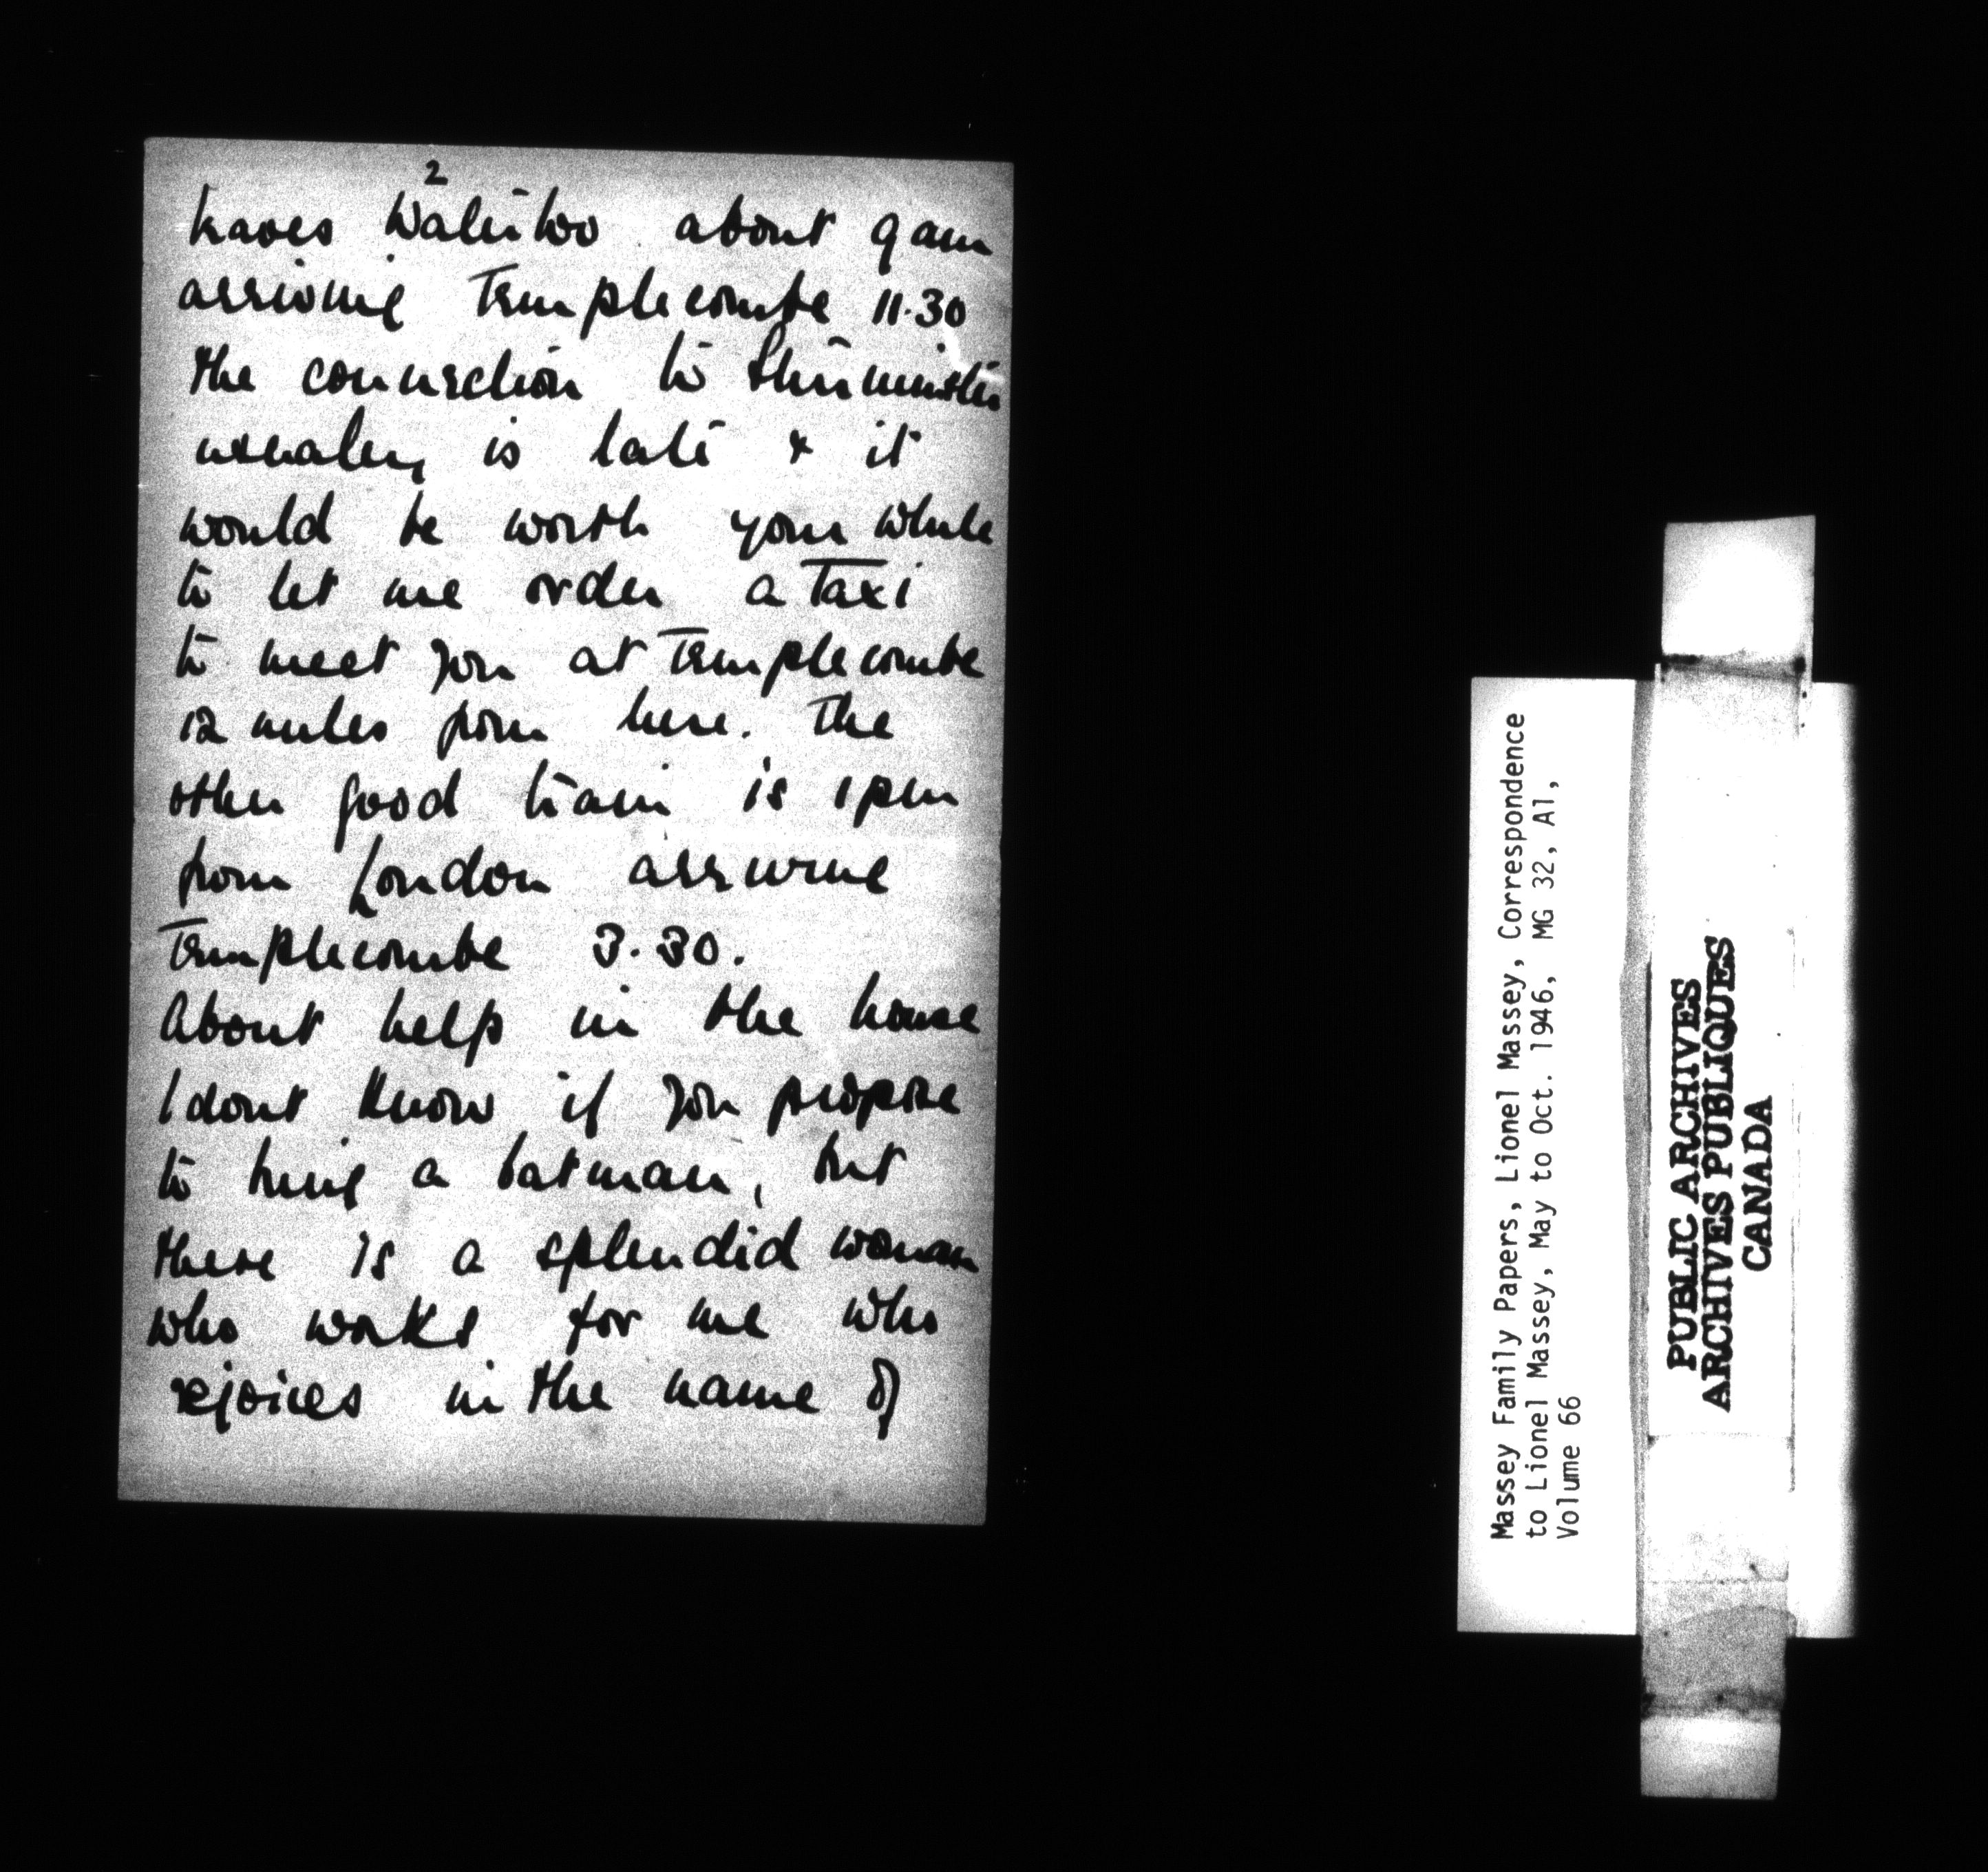 2
leaves Waterloo about 9 am
arriving Templecombe 11.30
the connection to Sturminster
usually is late & it
would be worth your while
to let me order a Taxi
to meet you at Templecombe
12 miles from here. The
other good train is 1 pm
from London arriving
Templecombe 3.30.
About help in the house
I dont know if you propose
to bring a batman, but
there is a splendid woman
who works for me who
rejoices in the name of
Massey Family Papers, Lionel Massey, Correspondence
to Lionel Massey, May to Oct. 1946, MG 32, A1,
Volume 66
PUBLIC ARCHIVES
ARCHIVES PUBLIQUES
CANADA